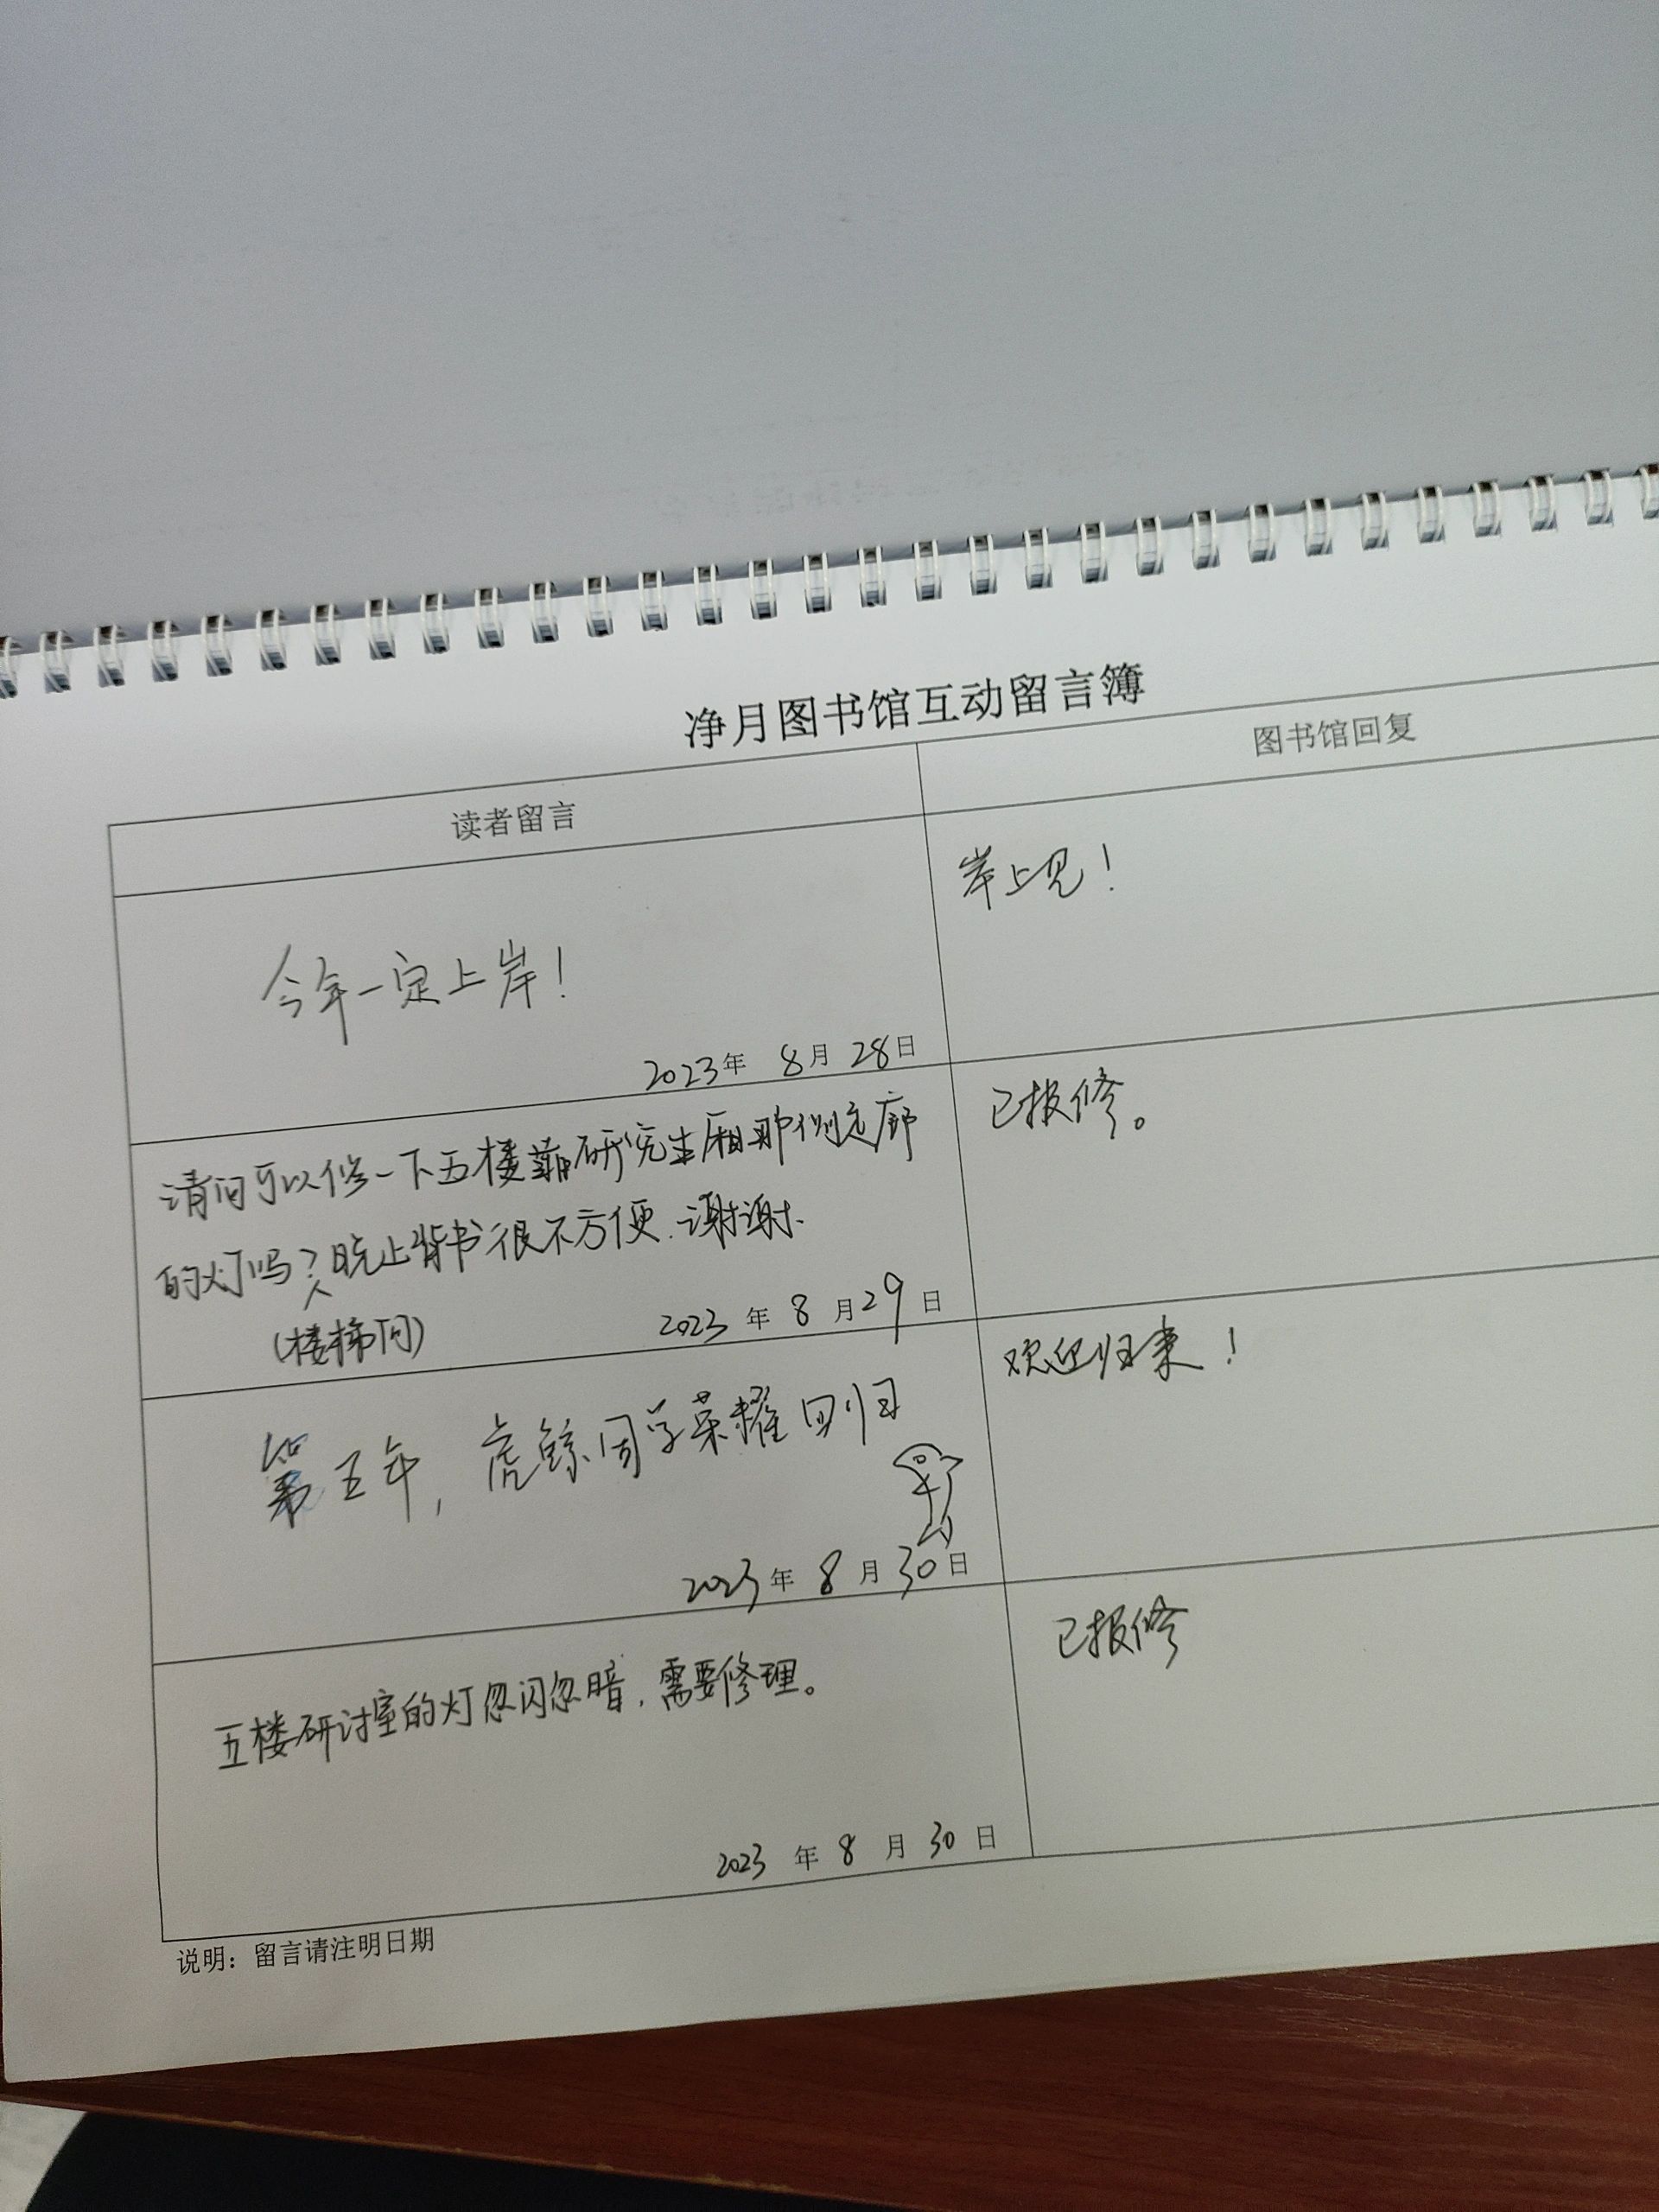 净月图书馆互动留言簿
读者留言
图书馆回复
今年一定上岸！
2023年 8月28日
岸上见！
请问可以修一下五楼靠研究生厢那侧走廊
的灯吗？晚上背书很不方便.谢谢.
(楼梯间)
2023 年 8 月29 日
已报修。
第五年，虎鲸同学荣耀回归
2023年 8 月 30日
欢迎归来！
五楼研讨室的灯忽闪忽暗，需要修理。
2023 年 8 月 30 日
已报修
说明：留言请注明日期